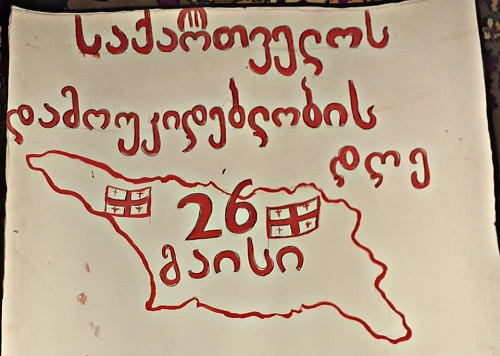 საქართველოს
დამოუკიდებლობის
დღე
26
მაისი